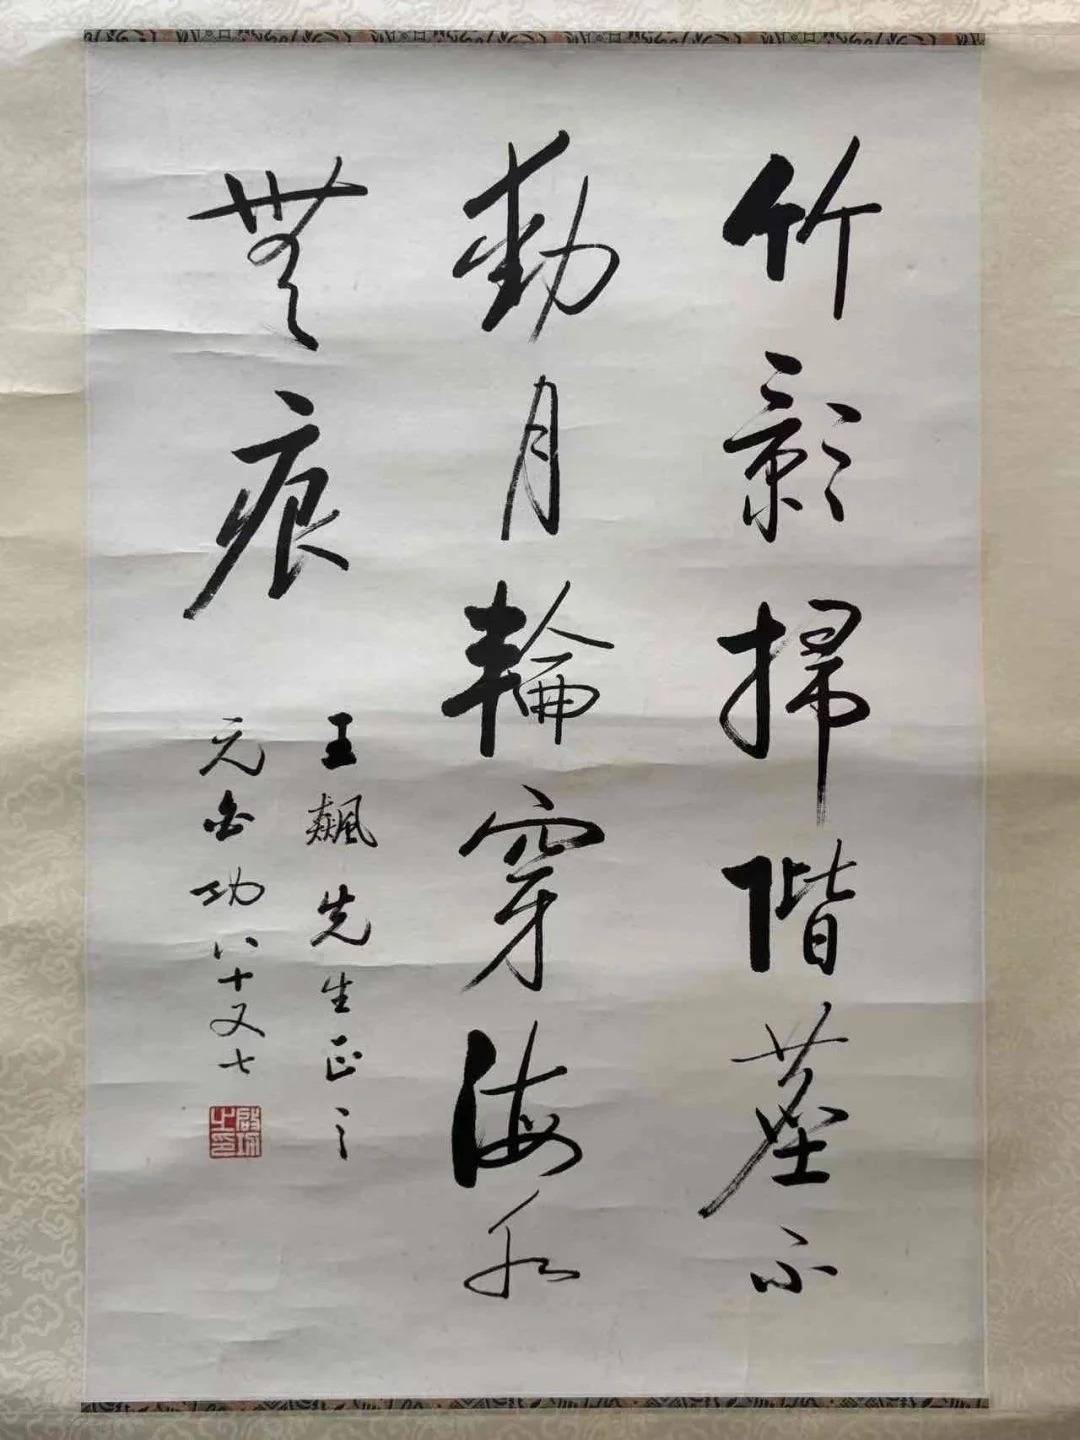 竹影掃階塵不
動月輪穿海水
無痕
王飆先生正之
元白功八十又七
啟功之印